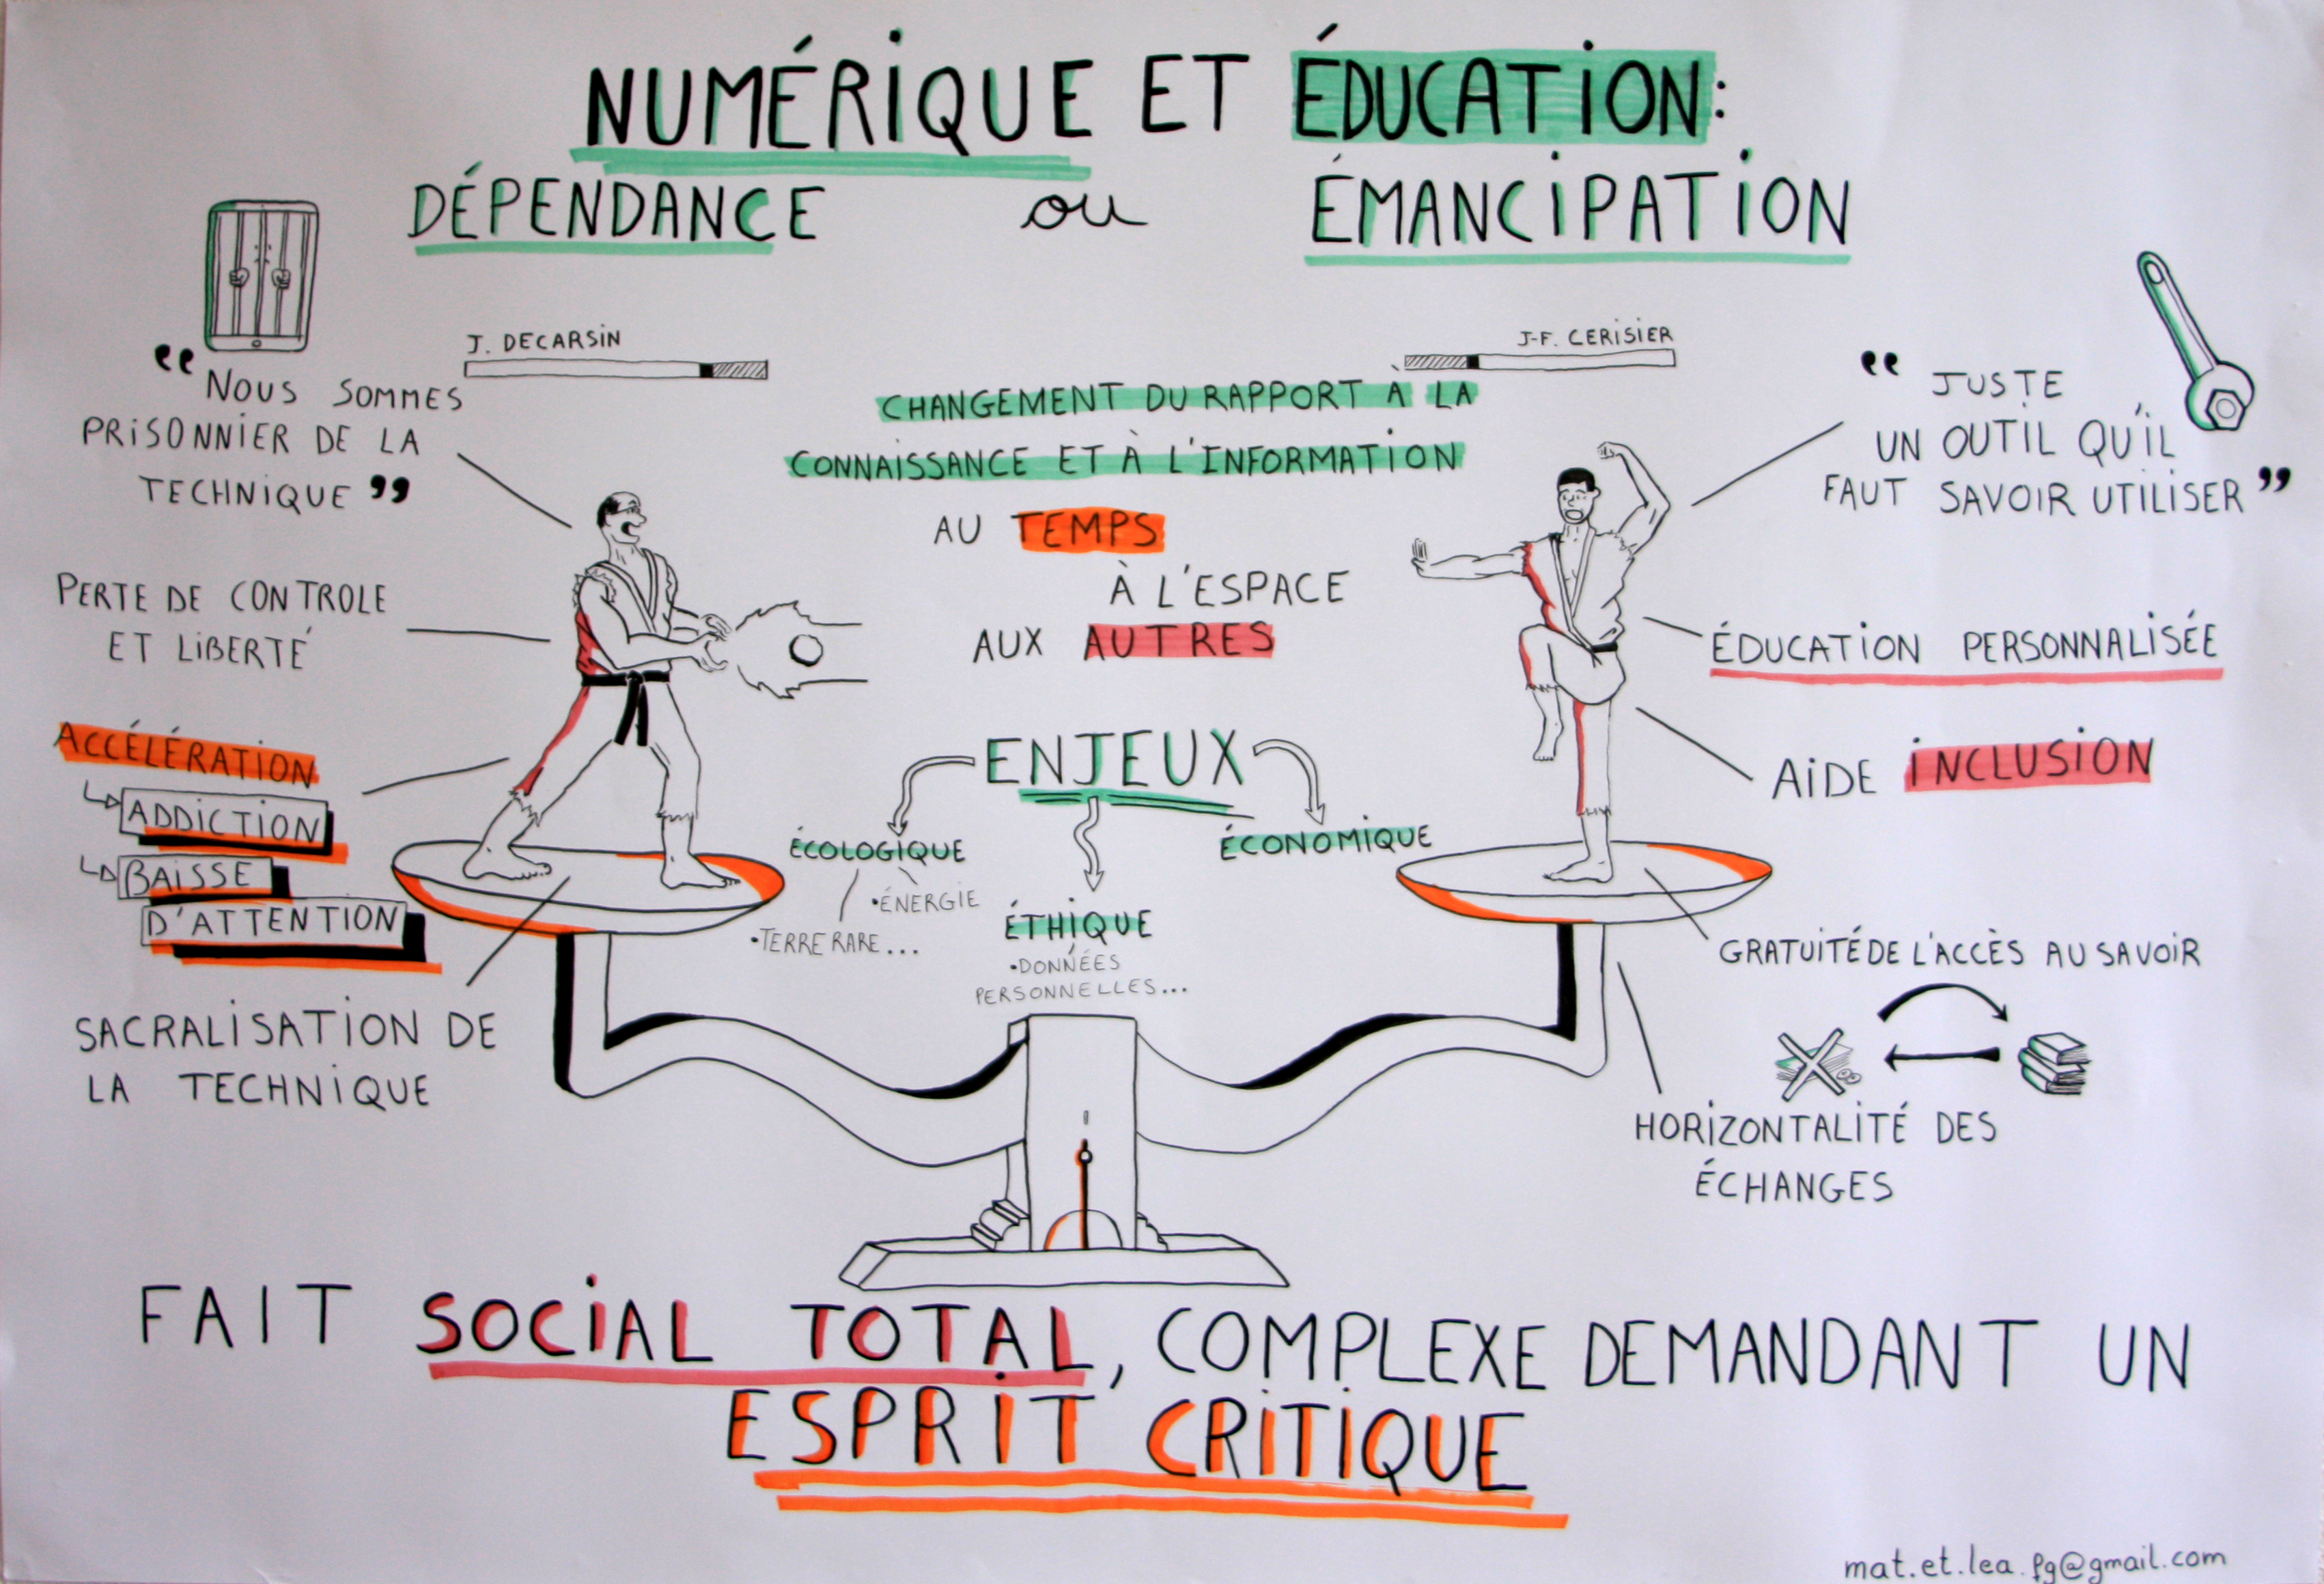 NUMÉRIQUE ET ÉDUCATION:
DÉPENDANCE ou ÉMANCIPATION
J. DECARSIN
J-F. CERISIER
“ NOUS SOMMES
PRISONNIER DE LA
TECHNIQUE ”
PERTE DE CONTROLE
ET LIBERTÉ
ACCÉLÉRATION
ADDICTION
BAISSE
D'ATTENTION
SACRALISATION DE
LA TECHNIQUE
CHANGEMENT DU RAPPORT À LA
CONNAISSANCE ET À L'INFORMATION
AU TEMPS
À L'ESPACE
AUX AUTRES
ENJEUX
ÉCOLOGIQUE
•ÉNERGIE
•TERRE RARE...
ÉTHIQUE
•DONNÉES
PERSONNELLES...
ÉCONOMIQUE
“ JUSTE
UN OUTIL QU'IL
FAUT SAVOIR UTILISER ”
ÉDUCATION PERSONNALISÉE
AIDE INCLUSION
GRATUITÉ DE L'ACCÈS AU SAVOIR
HORIZONTALITÉ DES
ÉCHANGES
FAIT SOCIAL TOTAL, COMPLEXE DEMANDANT UN
ESPRIT CRITIQUE
mat.et.lea.fg@gmail.com